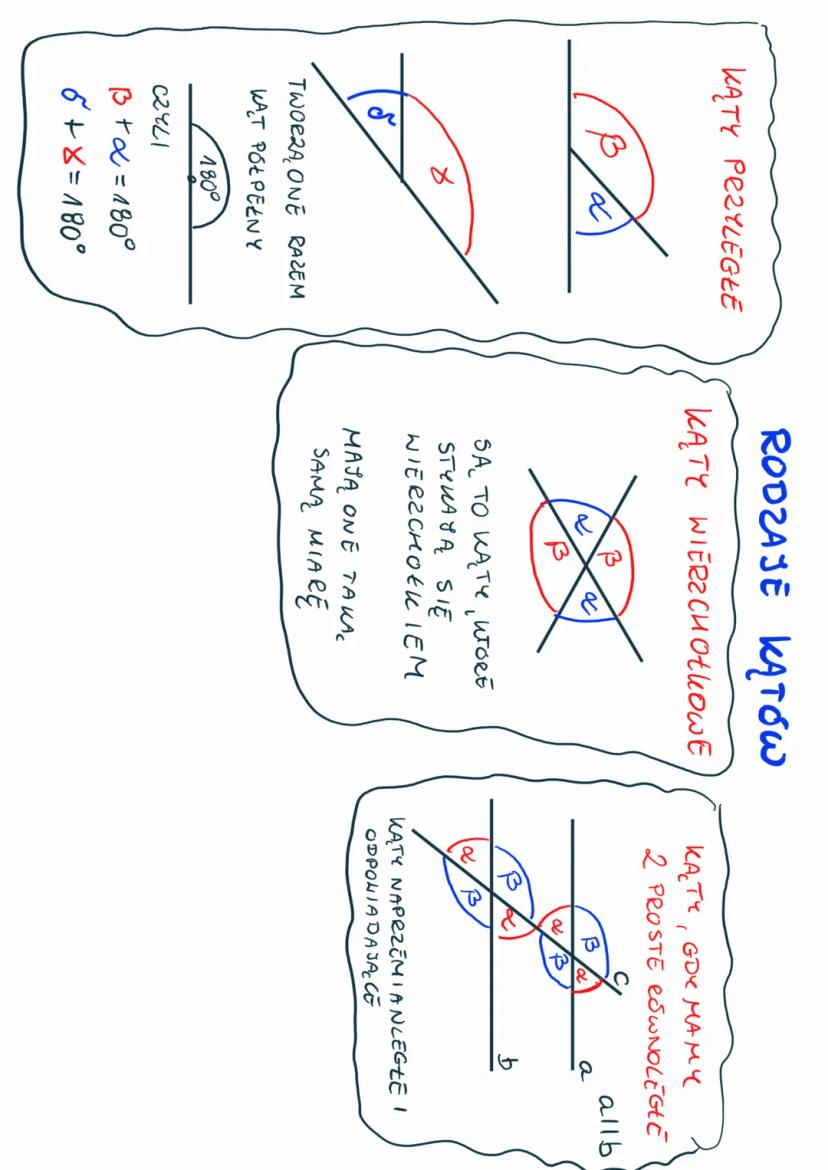 RODZAJE KĄTÓW
KĄTY PRZYLEGŁE
β
α
γ
δ
TWORZĄ ONE RAZEM
KĄT PÓŁPEŁNY
180°
CZYLI
β + α = 180°
δ + γ = 180°
KĄTY WIERZCHOŁKOWE
β
α
α
β
SĄ TO KĄTY, KTÓRE
STYKAJĄ SIĘ
WIERZCHOŁKIEM
MAJĄ ONE TAKĄ
SAMĄ MIARĘ
KĄTY, GDY MAMY
2 PROSTE RÓWNOLEGŁE
a||b
c
a
β
α
α
β
b
β
α
α
β
KĄTY NAPRZEMIANLEGŁE I
ODPOWIADAJĄCE